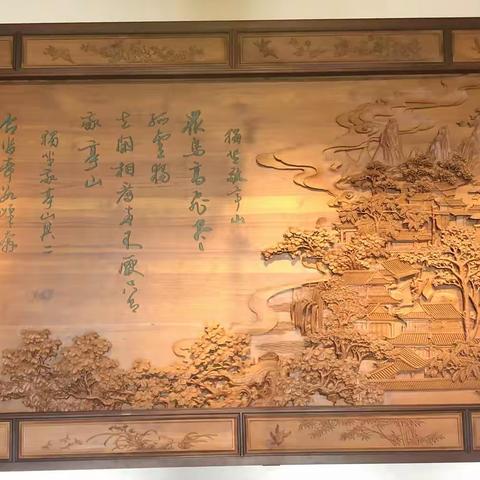 獨坐敬亭山
眾鳥高飛盡
孤雲獨
去閑相看兩不厭只有
敬亭山
獨坐敬亭山其二